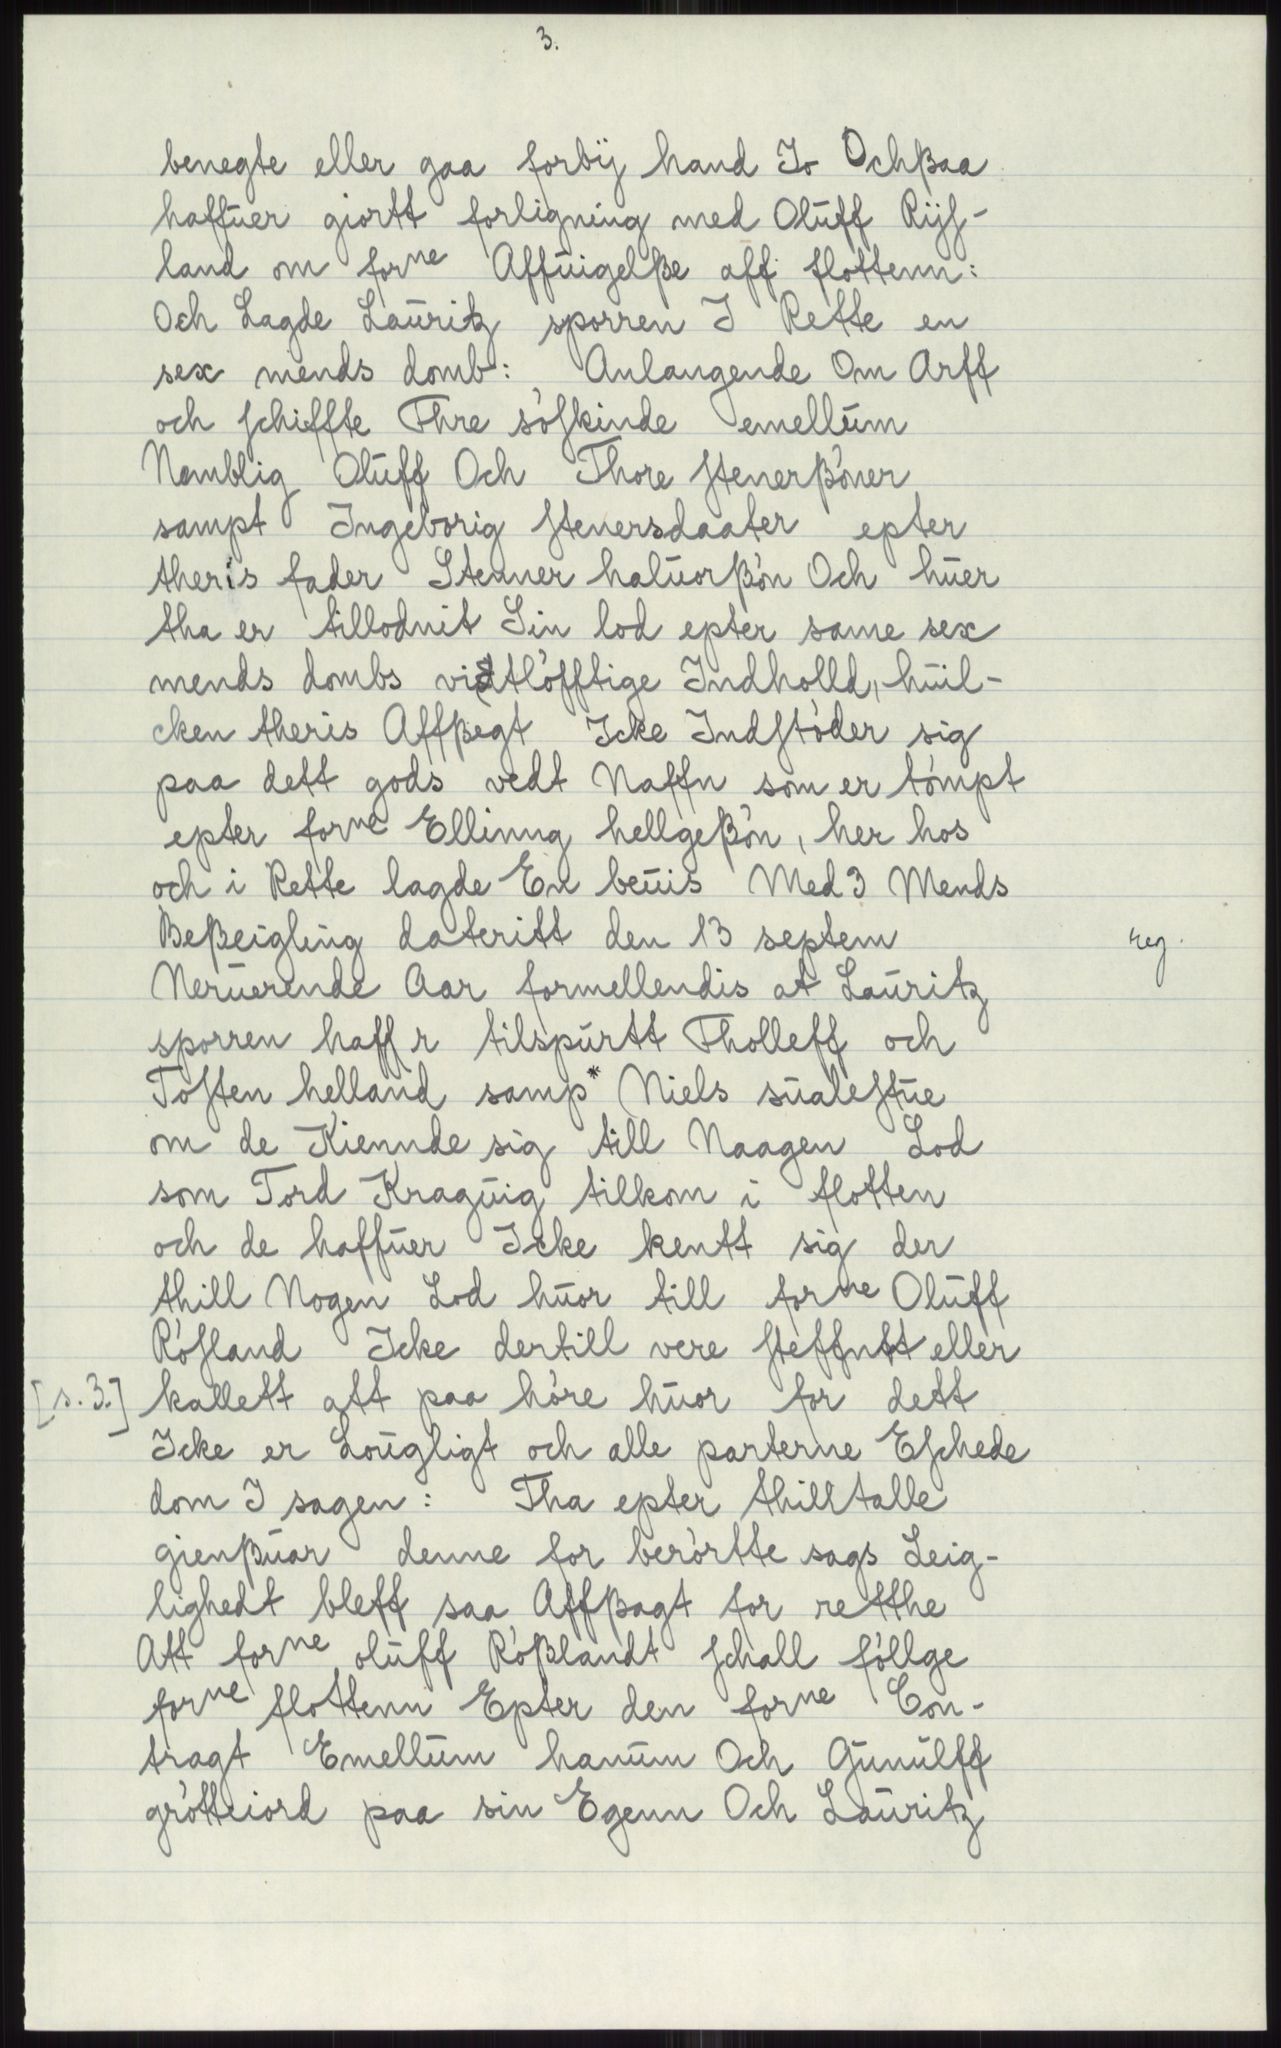 3.
benegte eller gaa forbÿ hand Jo Ochßaa
haffuer giortt forligning med Oluff Rÿs-
land om forne Affuigelße aff flottenn:
Och Lagde Lauritz sporren J Rette en
sex mends domb: Anlangende Om Arff
och schiffte Thre söskinde emellum
Namblig Oluff Och Thore stenerßöner
sampt Jngeborig stenersdaater epter
theris fader Stenner haluorßön Och huer
tha er tillodnit Sin lod epter same sex
mends dombs vidtlöfftige Jndholld, huil-
cken theris Affßegt Jcke Jndstöder sig
paa dett gods vedt Naffn som er tömpt
epter forne Ellinng hellgeßön, her hos
och i Rette lagde En beuis Med 3 Mends
Beßeigling dateritt den 13 septem reg.
Neruerende Aar formellendis at Lauritz
sporren haff r tilspurtt Tholleff och
Tosten helland samp* Niels sualestue
om de Kiennde sig till Naagen Lod
som Tord Kraguig tilkom i flotten
och de haffuer Jcke kentt sig der
thill Nogen Lod huor till forne Oluff
Rösland Jcke dertill vere steffntt eller
[s. 3.] kallett att paa höre huor for dett
Jcke er Lougligt och alle parterne Eschede
dom J sagen: Tha epter thilltalle
gienßuar denne for berörtte sags Leig-
lighedt bleff saa Affßagt for retthe
Att forne oluff Rößlandt schall föllge
forne flottenn Epter den forne Con-
tragt Emellum hanum Och Gunulff
grötteiord paa sin Egenn Och Lauritz